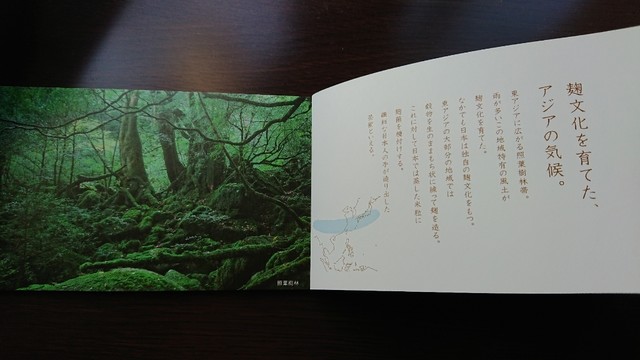 麹文化を育てた、
アジアの気候。
東アジアに広がる照葉樹林帯。
雨が多いこの地域特有の風土が
麹文化を育てた。
なかでも日本は独自の麹文化をもつ。
東アジアの大部分の地域では
穀物を生のまますり
これに対して日本では蒸した米粒に
麹菌を種付けする。
繊細な日本人の手が造り出した
芸術といえる。
照葉樹林